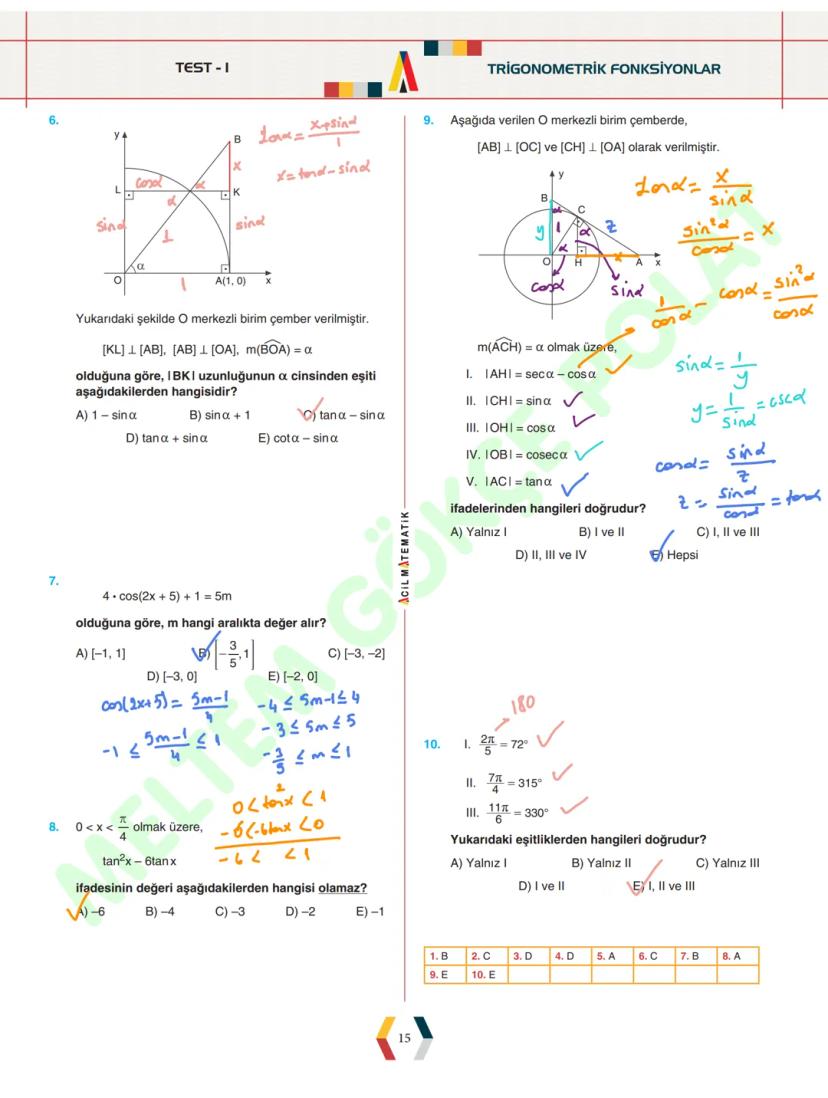 TEST - I
TRİGONOMETRİK FONKSİYONLAR
6.
y
B
L
K
O
α
A(1, 0)
x
cosα
α
α
x
sinα
sinα
1
1
tanα = x+sinα / 1
x = tanα - sinα
Yukarıdaki şekilde O merkezli birim çember verilmiştir.
[KL] ⊥ [AB], [AB] ⊥ [OA], m(BOA) = α
olduğuna göre, |BK| uzunluğunun α cinsinden eşiti
aşağıdakilerden hangisidir?
A) 1 – sinα B) sinα + 1 C) tanα – sinα
D) tanα + sinα E) cotα – sinα
7.
4 • cos(2x + 5) + 1 = 5m
olduğuna göre, m hangi aralıkta değer alır?
A) [–1, 1] B) [–3/5, 1] C) [–3, –2]
D) [–3, 0] E) [–2, 0]
cos(2x+5) = 5m-1 / 4
-1 ≤ 5m-1 / 4 ≤ 1
-4 ≤ 5m-1 ≤ 4
-3 ≤ 5m ≤ 5
-3/5 ≤ m ≤ 1
8.
0 < x < π/4 olmak üzere,
tan²x – 6tanx
0 < tan²x < 1
-6 < -6tanx < 0
-6 < < 1
ifadesinin değeri aşağıdakilerden hangisi olamaz?
A) –6 B) –4 C) –3 D) –2 E) –1
ACİL MATEMATİK
9.
Aşağıda verilen O merkezli birim çemberde,
[AB] ⊥ [OC] ve [CH] ⊥ [OA] olarak verilmiştir.
y
B
C
O
H
A
x
α
y
1
α
z
α
x
cosα
sinα
tanα = x / sinα
sin²α / cosα = x
1/cosα - cosα = sin²α / cosα
m(ACH) = α olmak üzere,
I. |AH| = secα – cosα
II. |CH| = sinα
III. |OH| = cosα
IV. |OB| = cosecα
V. |AC| = tanα
sinα = 1/y
y = 1/sinα = cscα
cosα = sinα / z
z = sinα / cosα = tanα
ifadelerinden hangileri doğrudur?
A) Yalnız I B) I ve II C) I, II ve III
D) II, III ve IV E) Hepsi
10.
180
I. 2π/5 = 72°
II. 7π/4 = 315°
III. 11π/6 = 330°
Yukarıdaki eşitliklerden hangileri doğrudur?
A) Yalnız I B) Yalnız II C) Yalnız III
D) I ve II E) I, II ve III
1. B 2. C 3. D 4. D 5. A 6. C 7. B 8. A
9. E 10. E
15
MELTEM GÖKÇE POLAT